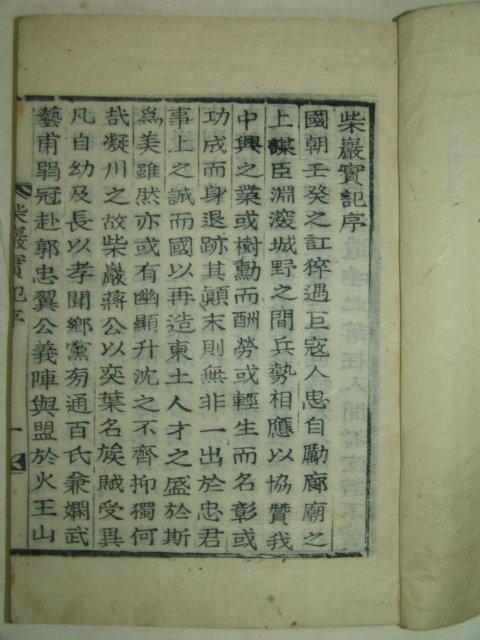 柴巖實記序
國朝壬癸之訌猝遇巨寇人思自勵廊廟之
上謀臣淵邃城野之間兵勢相應以協贊我
中興之業或樹勳而酬勞或輕生而名彰或
功成而身退跡其顚末則無非一出於忠君
事上之誠而國以再造東土人才之盛於斯
爲美雖然亦或有幽顯升沈之不齊抑獨何
哉凝川之故柴巖蔣公以奕葉名族賦受異
凡自幼及長以孝聞鄕黨旁通百氏兼嫻武
藝甫弱冠赴郭忠翼公義陣與盟於火王山
柴巖實記序 一